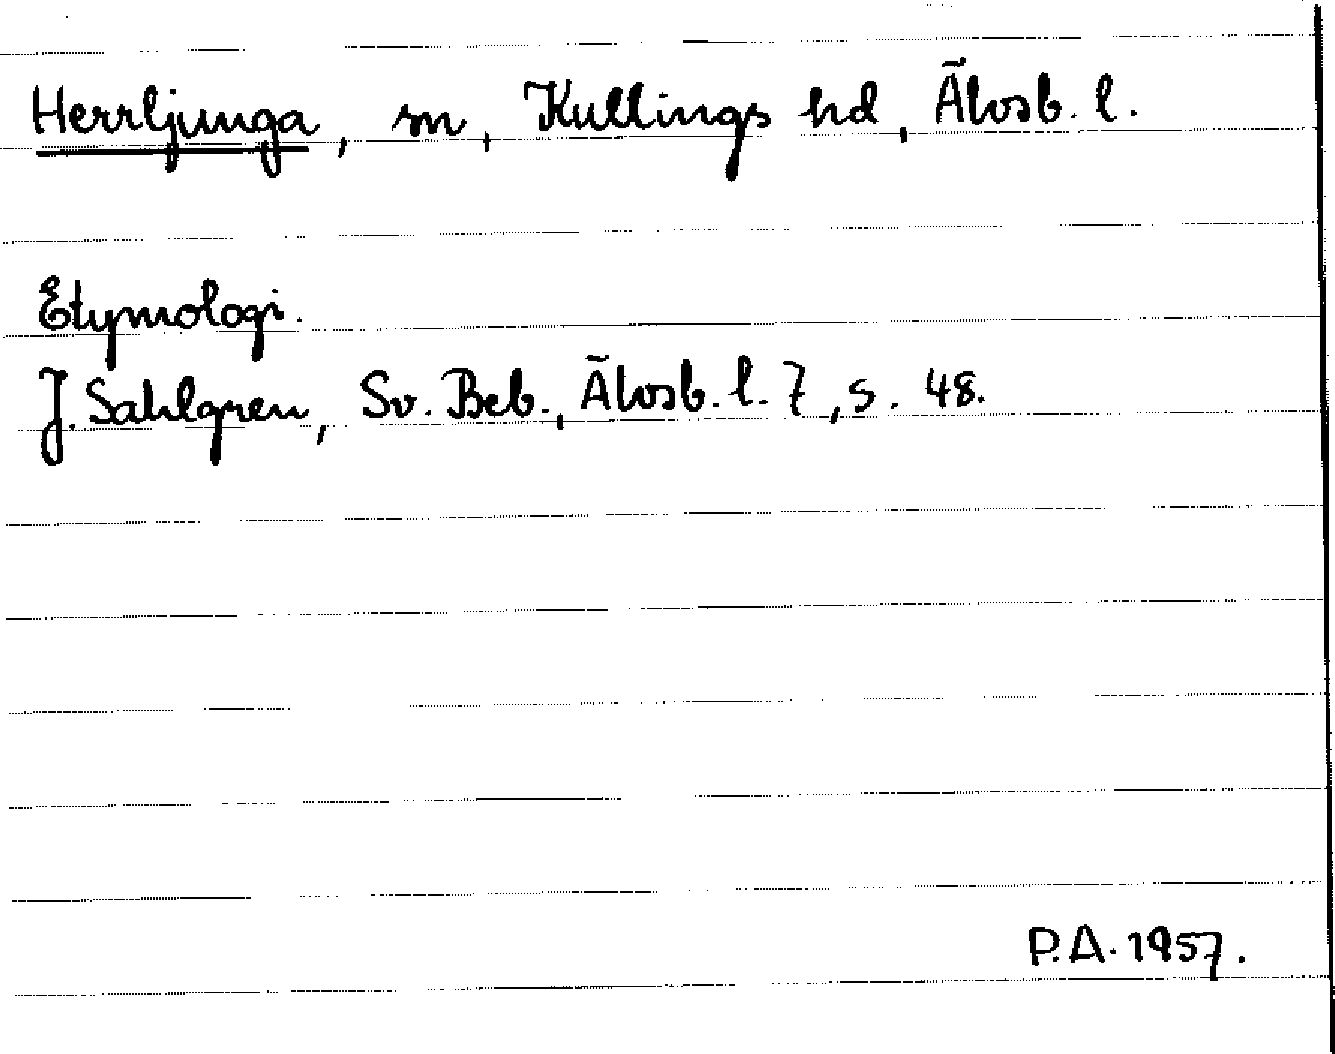 Herrljunga, sn, Kullings hd, Älvsb. l.
Etymologi.
J. Sahlgren, Sv. Beb., Älvsb. l. 7, s. 48.
P.A. 1957.